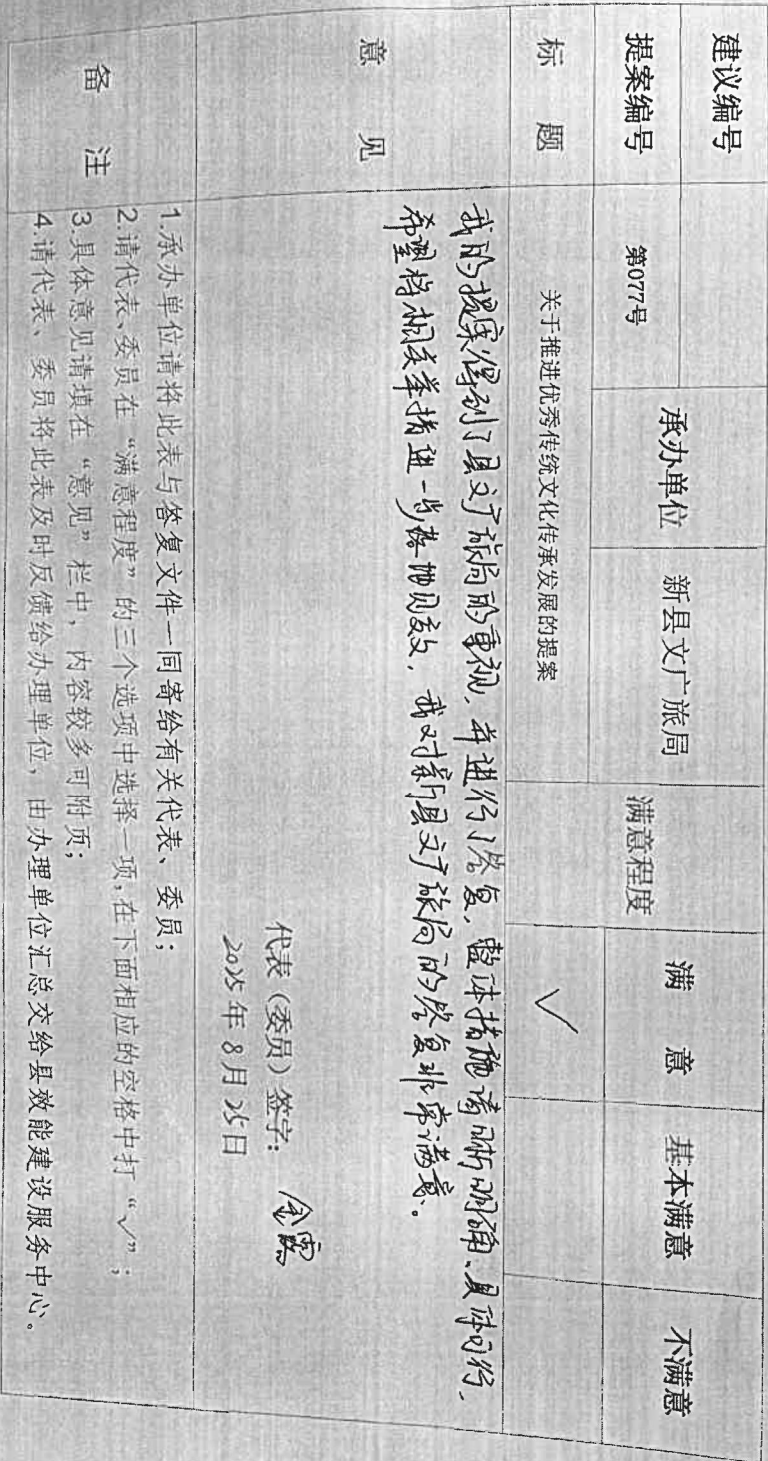 建议编号
提案编号 第077号 承办单位 新县文广旅局 满意程度 满意 基本满意 不满意
标题 关于推进优秀传统文化传承发展的提案 √
意见
我的提案得到了县文广旅局的重视，并进行了答复，整体措施清晰明确、具体可行，
希望将相关举措进一步落地见效，我对新县文广旅局的答复非常满意。
代表（委员）签字：金露
2025年8月25日
备注
1.承办单位请将此表与答复文件一同寄给有关代表、委员；
2.请代表、委员在“满意程度”的三个选项中选择一项，在下面相应的空格中打“√”；
3.具体意见请填在“意见”栏中，内容较多可附页；
4.请代表、委员将此表及时反馈给办理单位，由办理单位汇总交给县效能建设服务中心。